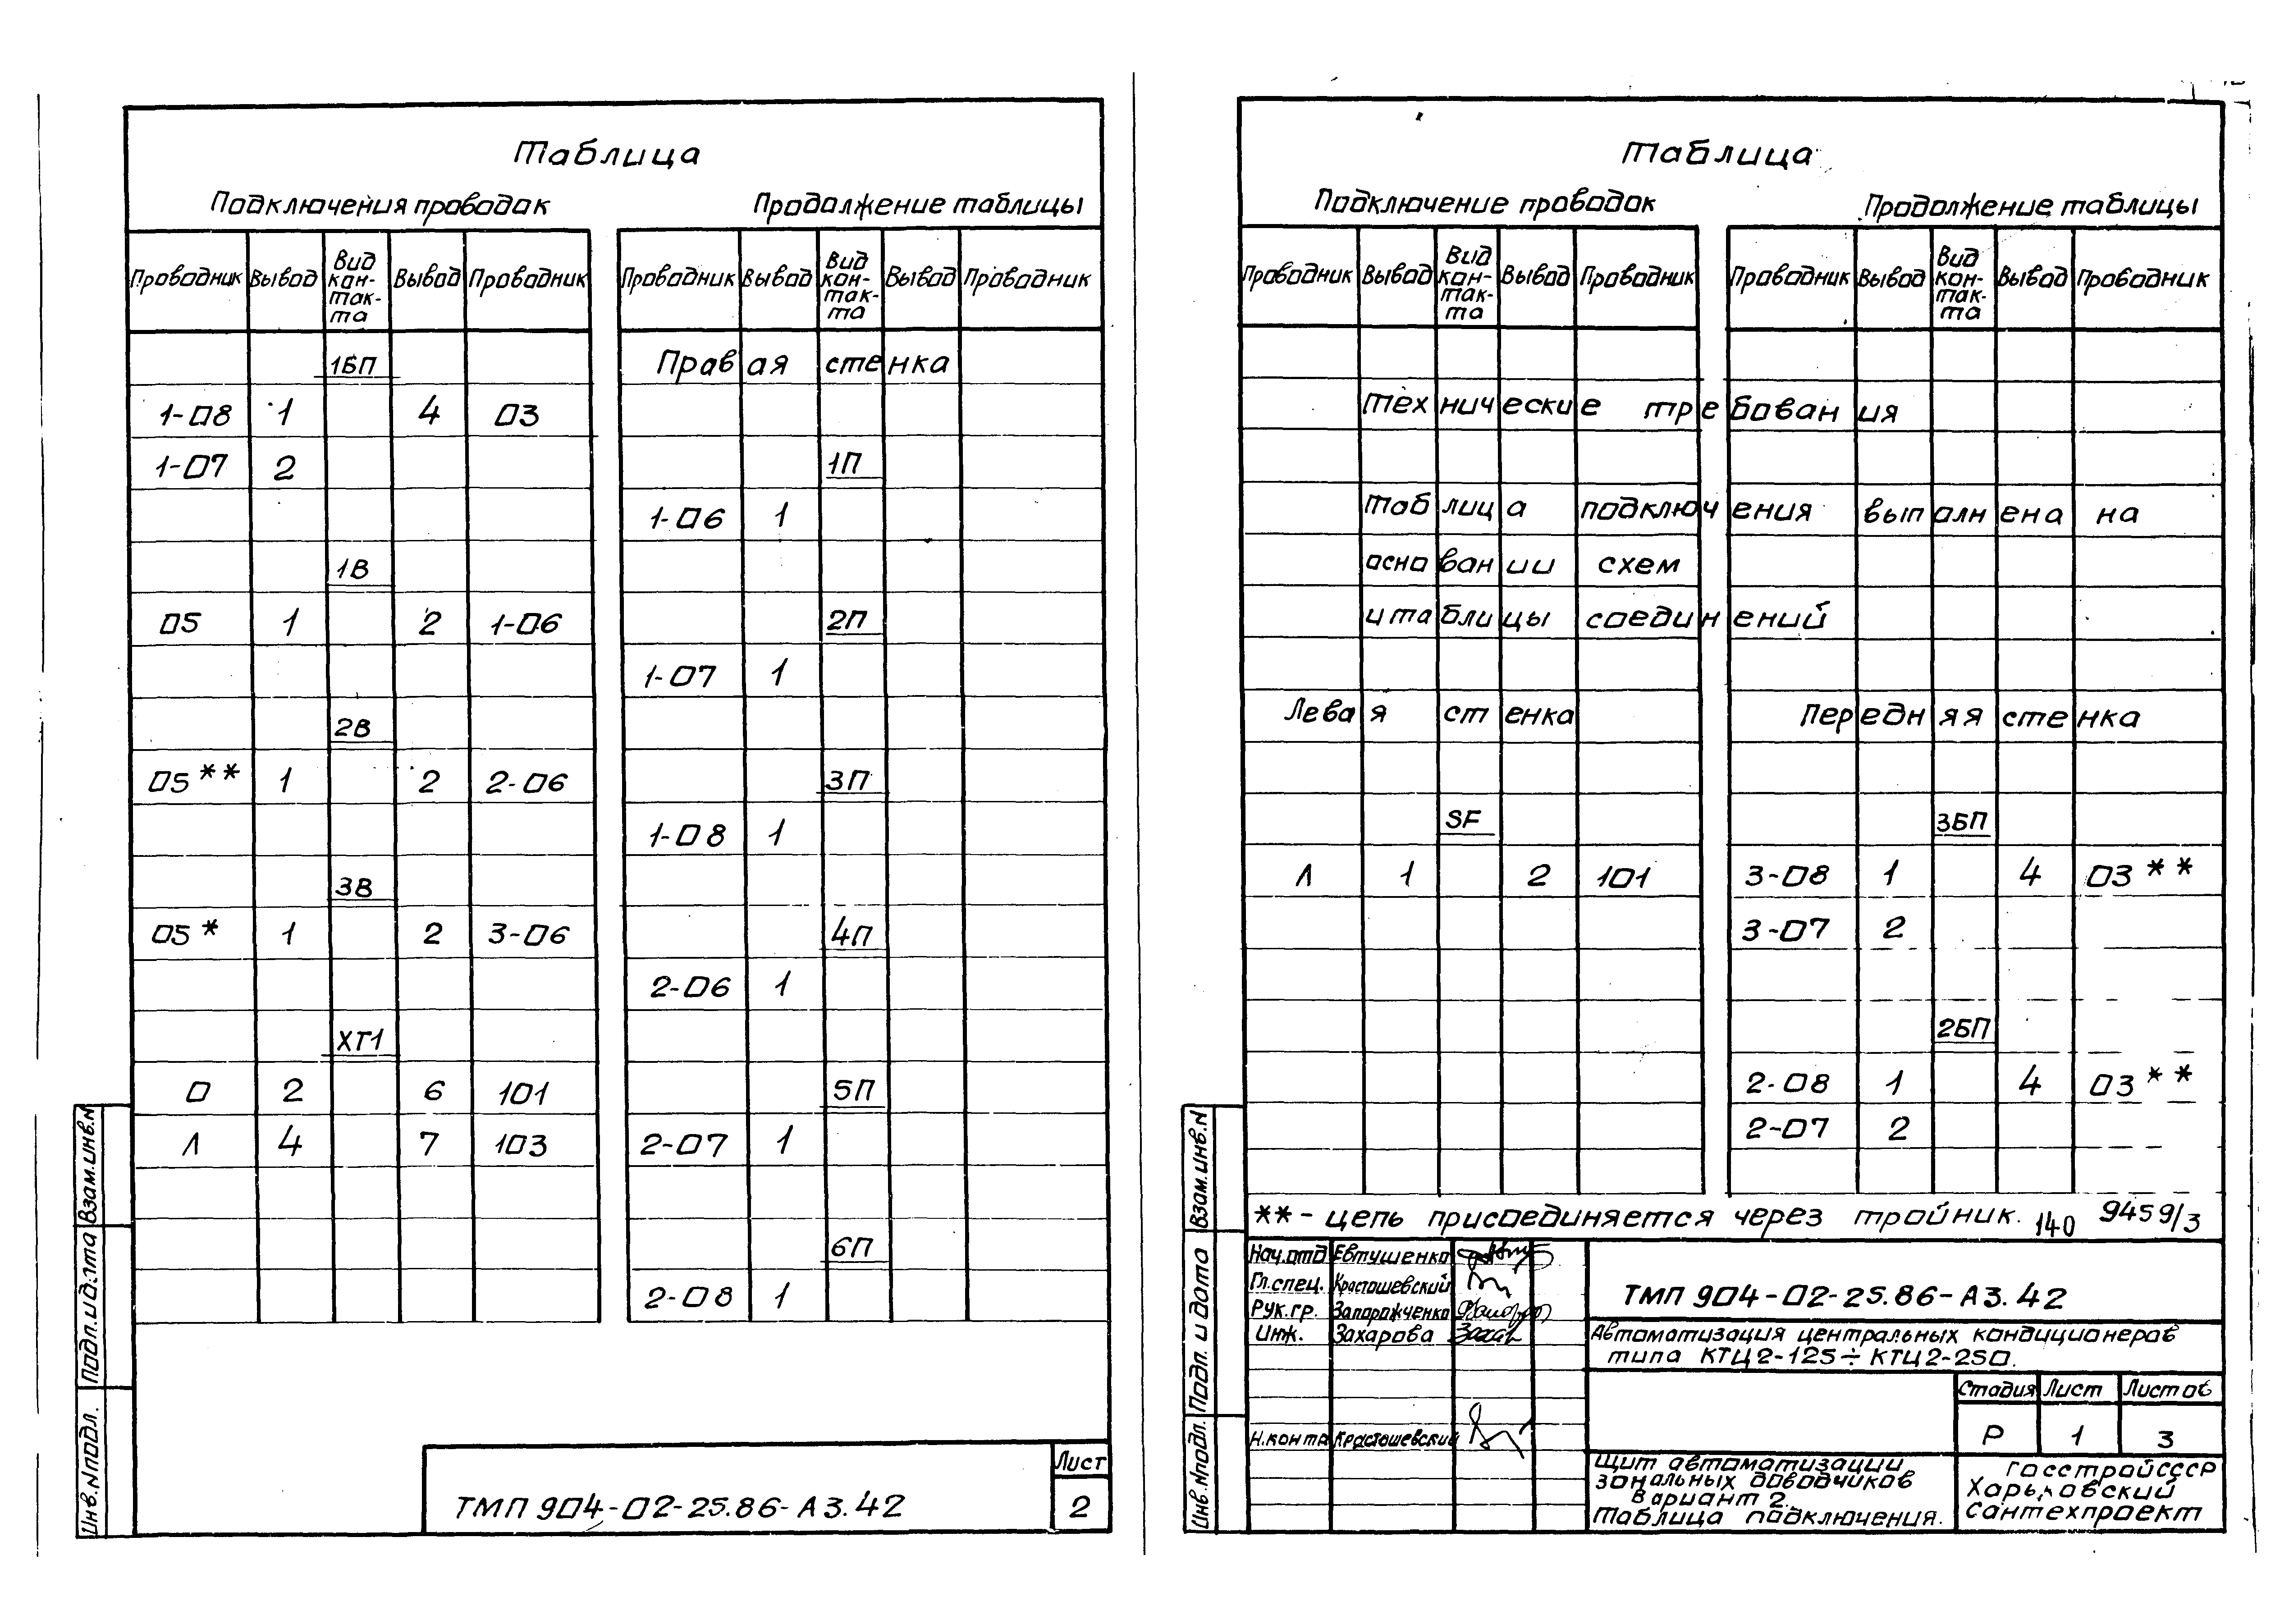 Таблица
Подключения проводок
Продолжение таблицы
Проводник Вывод Вид кон-так-та Вывод Проводник
Проводник Вывод Вид кон-так-та Вывод Проводник
1БП
1-08 1 4 03
1-07 2
1В
05 1 2 1-06
2В
05** 1 2 2-06
3В
05* 1 2 3-06
ХТ1
0 2 6 101
Л 4 7 103
Правая стенка
1П
1-06 1
2П
1-07 1
3П
1-08 1
4П
2-06 1
5П
2-07 1
6П
2-08 1
Взам.инв.N
Подп.и дата
Инв.Nподл.
ТМП 904-02-25.86-А3.42
Лист
2
Таблица
Подключение проводок
Продолжение таблицы
Проводник Вывод Вид кон-так-та Вывод Проводник
Проводник Вывод Вид кон-так-та Вывод Проводник
Технические требования
Таблица подключения выполнена на
основании схем
и таблицы соединений
Левая стенка
Передняя стенка
SF
Л 1 2 101
3БП
3-08 1 4 03**
3-07 2
2БП
2-08 1 4 03**
2-07 2
** - цепь присоединяется через тройник.
140
9459/3
Взам.инв.N
Подп. и дата
Инв.Nподл.
Нач.отд Евтушенко
Гл.спец. Красташевский
Рук.гр. Запорожченко
Инж. Захарова
Н.контр Красташевский
ТМП 904-02-25.86-А3.42
Автоматизация центральных кондиционеров
типа КТЦ2-125÷КТЦ2-250.
Стадия Лист Листов
Р 1 3
Щит автоматизации
зональных доводчиков
Вариант 2.
Таблица подключения.
Госстрой СССР
Харьковский
Сантехпроект